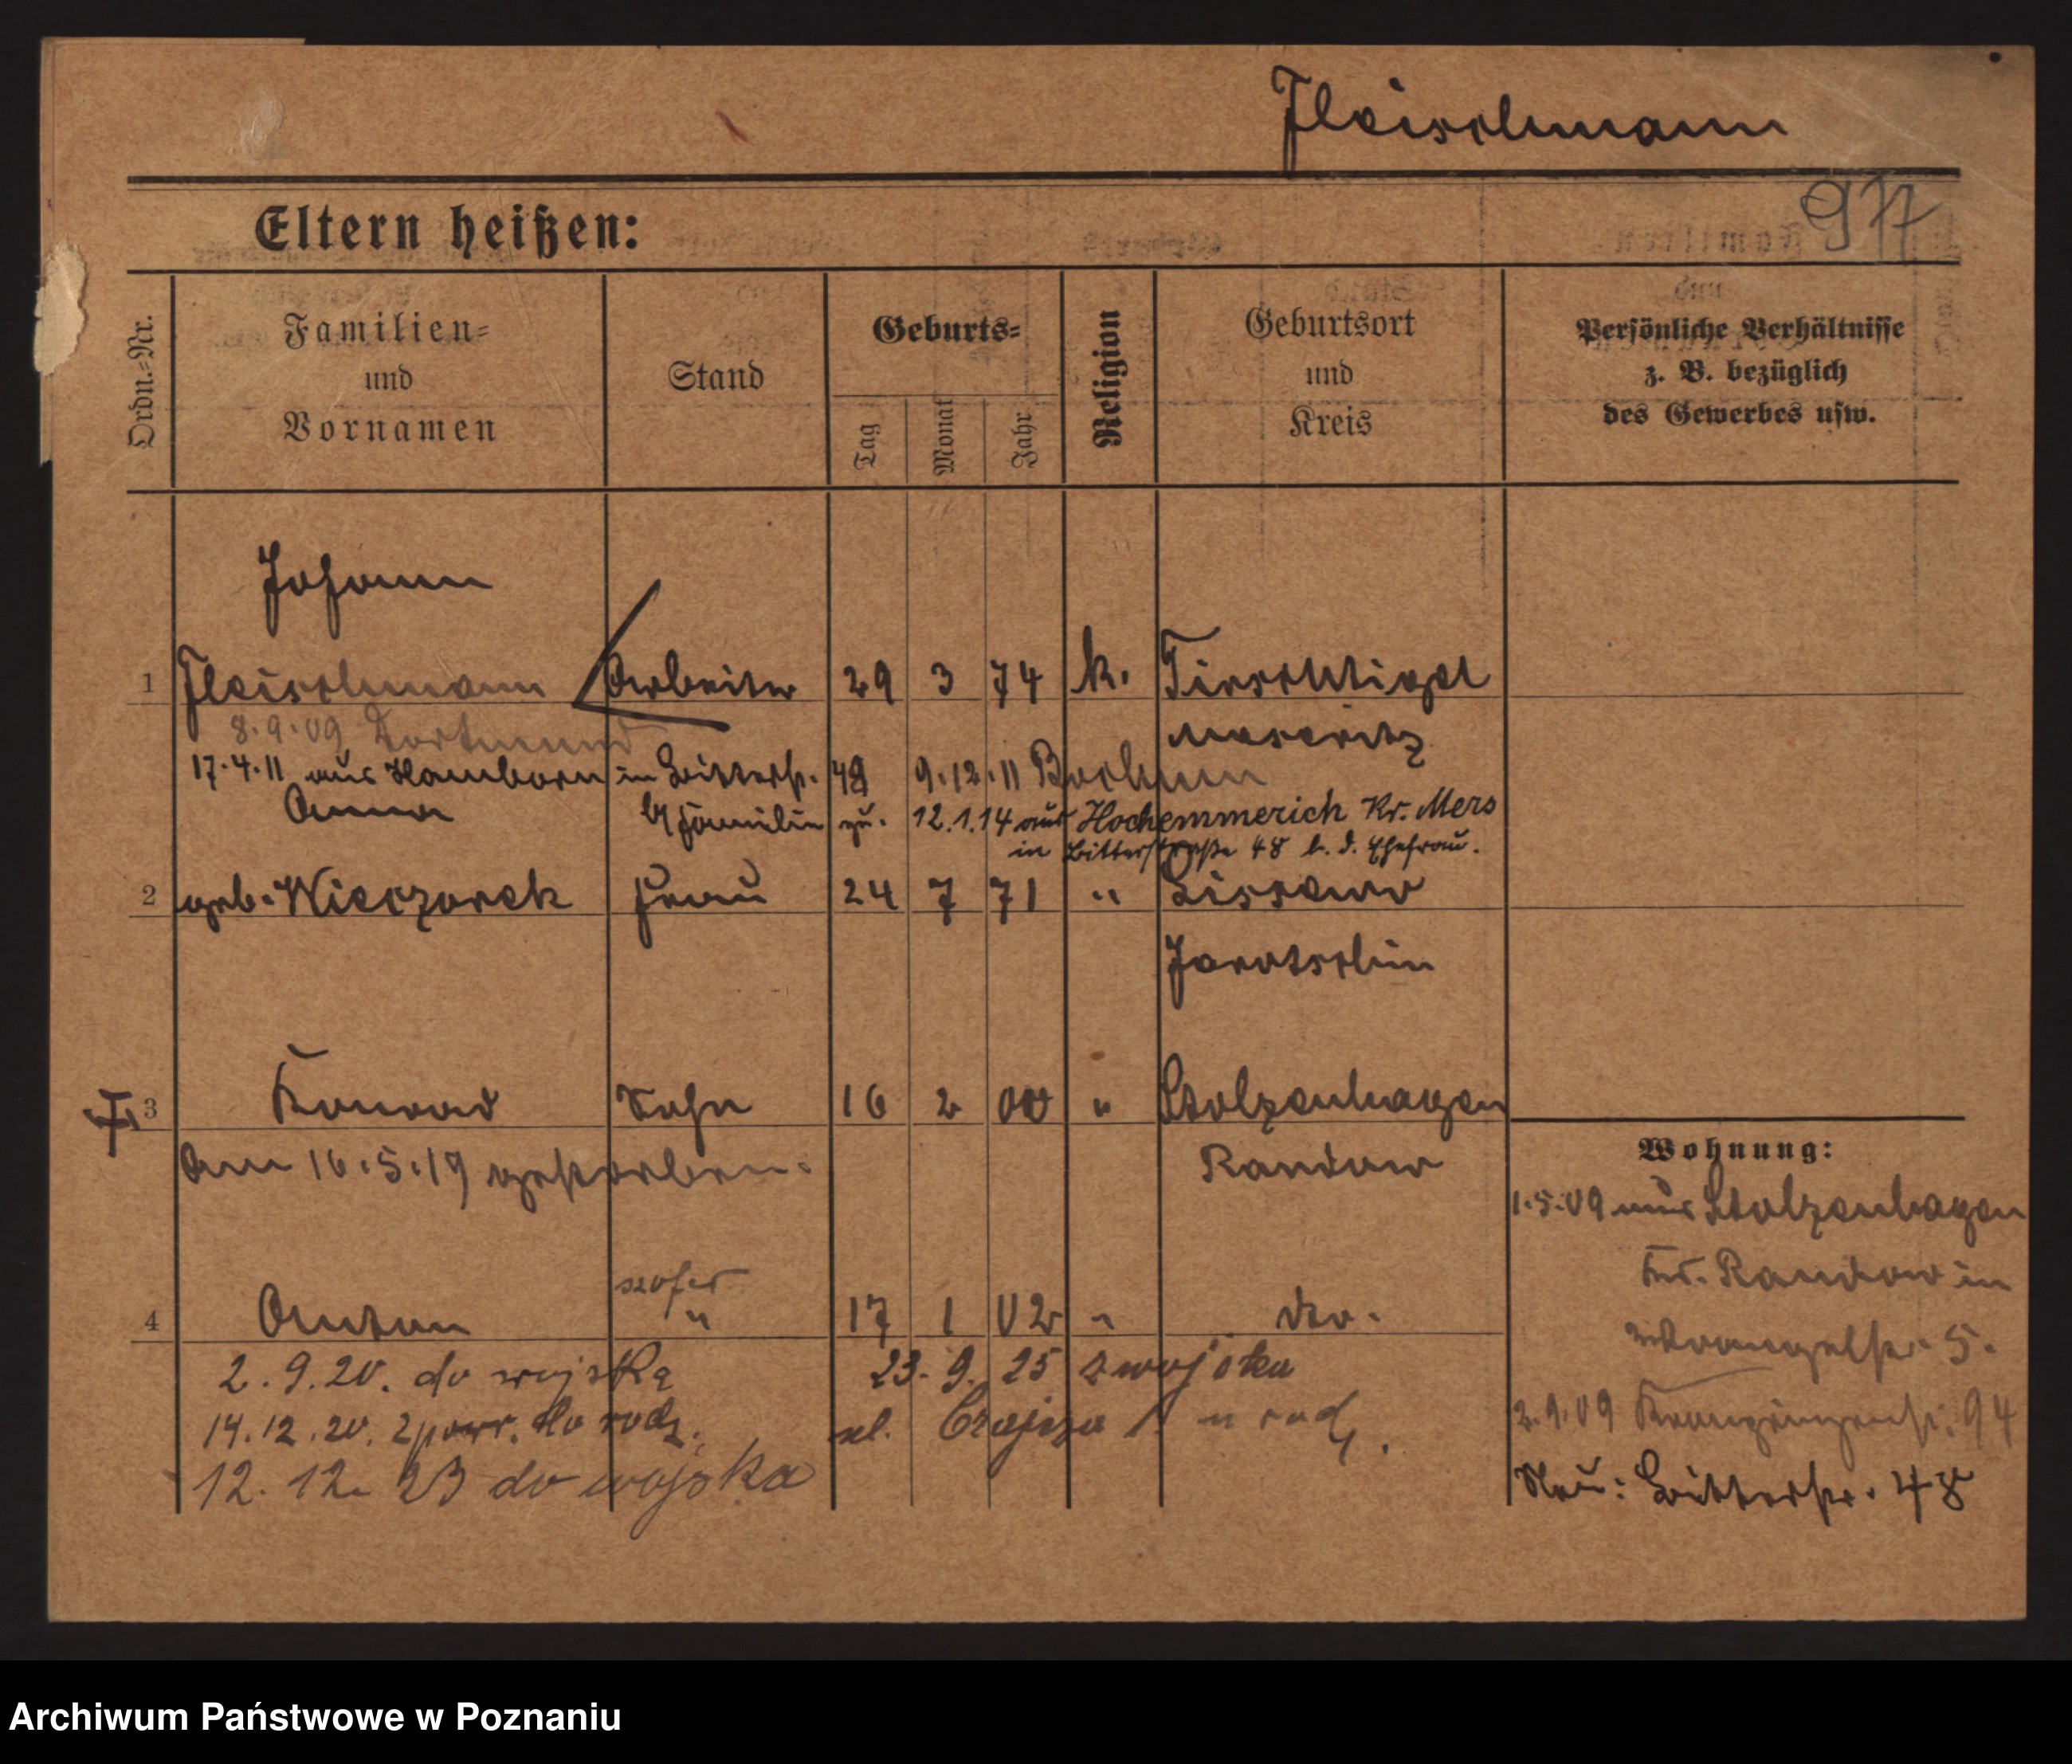 Fleischmann
977
Eltern heißen:
Ordn.=Nr.
Familien=
und
Vornamen
Stand
Geburts=
Tag
Monat
Jahr
Religion
Geburtsort
und
Kreis
Persönliche Verhältnisse
z. B. bezüglich
des Gewerbes usw.
Johann
1 Fleischmann Arbeiter 29 3 74 k. Tirschtigel
Meseritz
8.9.09 Dortmund
17.4.11 aus Hamborn in Bitterstr. 48 9.12.11 Bochum
Anna
Familie zu. 12.1.14 aus Hochemmerich Kr. Mers
in Bitterstraße 48 b. d. Ehefrau.
2 geb. Wieczorek Frau 24 7 71 " Lissewo
Jarotschin
3 Konrad Sohn 16 2 00 " Stolzenhagen
Randow
Am 16.5.19 gestorben.
szofer
4 Anton " 17 1 02 " dto.
2.9.20. do wojska 23. 9. 25 z wojska
14.12.20. zpowr. do rodz. ul. 1 u rodz.
12. 12. 23 do wojska
Wohnung:
1.5.09 aus Stolzenhagen
Kr. Randow in
5.
2.9.09 94
Neu: Bitterstr. 48
Archiwum Państwowe w Poznaniu